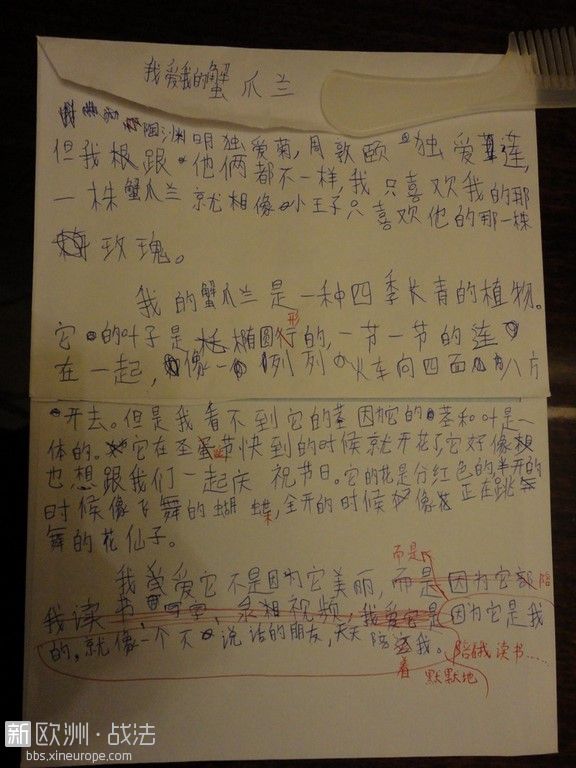 我爱我的蟹爪兰
陶渊明独爱菊,周敦颐独爱莲,
但我根跟他俩都不一样,我只喜欢我的那
一株蟹爪兰就相像小王子只喜欢他的那一株
玫瑰。
我的蟹爪兰是一种四季长青的植物。
形
它的叶子是椭圆行的,一节一节的连
在一起,像一列列火车向四面八方
开去。但是我看不到它的茎因为它的茎和叶是一
体的。它在圣诞节快到的时候就开花了它好像
也想跟我们一起庆祝节日。它的花是分红色的,半开的
时候像飞舞的蝴蝶,全开的时候像正在跳
舞的花仙子。
而是
我爱它不是因为它美丽,而是因为它部陪
我读书,写字,录相视频,我爱它是因为它是我
的。就像一个不说话的朋友,天天陪我。陪我读书……
着 默默地
新欧洲·战法
bbs.xineurope.com